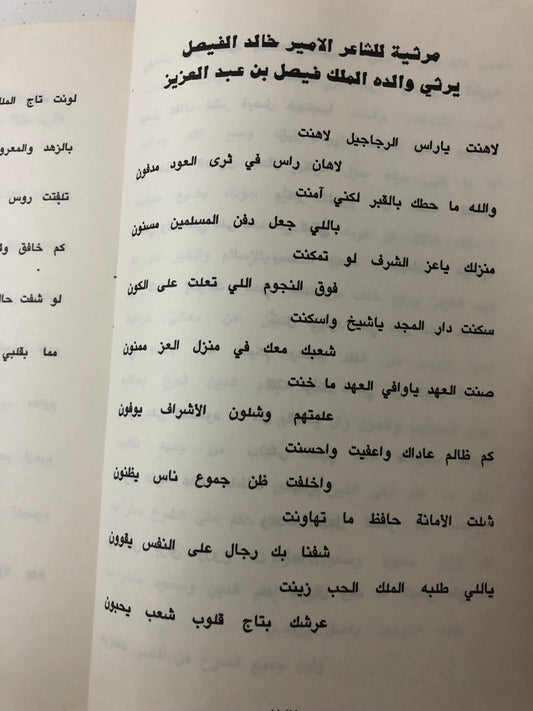 مرثية للشاعر الامير خالد الفيصل
يرثي والده الملك فيصل بن عبد العزيز
لاهنت ياراس الرجاجيل لاهنت
لاهان راس في ثرى العود مدفون
والله ما حطك بالقبر لكني آمنت
باللي جعل دفن المسلمين مسنون
منزلك ياعز الشرف لو تمكنت
فوق النجوم اللي تعلت على الكون
سكنت دار المجد ياشيخ واسكنت
شعبك معك في منزل العز ممنون
صنت العهد ياوافي العهد ما خنت
علمتهم وشلون الأشراف يوفون
كم ظالم عاداك واعفيت واحسنت
واخلفت ظن جموع ناس يظنون
شلت الأمانة حافظ ما تهاونت
شفنا بك رجال على النفس يقوون
ياللي طلبه الملك الحب زينت
عرشك بتاج قلوب شعب يحبون
لونت تاج
بالزهد
تلفتت روس
كم خافق
لو شفت
مما بقلبي